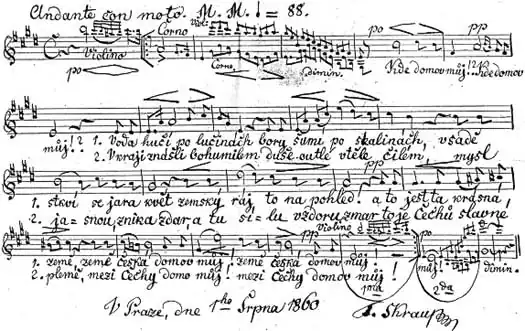 Andante con moto. M. M. ♩ = 88.
Corno Viol:
Violino
po Corno dimin. po pp
Kde domov můj!? Kde domov
můj!? 1. Voda hučí po lučinách bory šumí po skalinách, v sadě
2. V kraji znášli Bohumilém duše outlé v těle čilém, mysl
1. stkví se jara květ zemský ráj to na pohled! a to jest ta krásná,
2. ja=snou, znik a zdar, a tu sí=lu vzdoru zmar to je Čechů slavné
Violino pp po pp
1. země, země česká domov můj! země česká domov můj! můj! dimin.
2. plémě, mezi Čechy domov můj! mezi Čechy domov můj!
1ma 2da
V Praze, dne 1ho Srpna 1860 F. Skraup